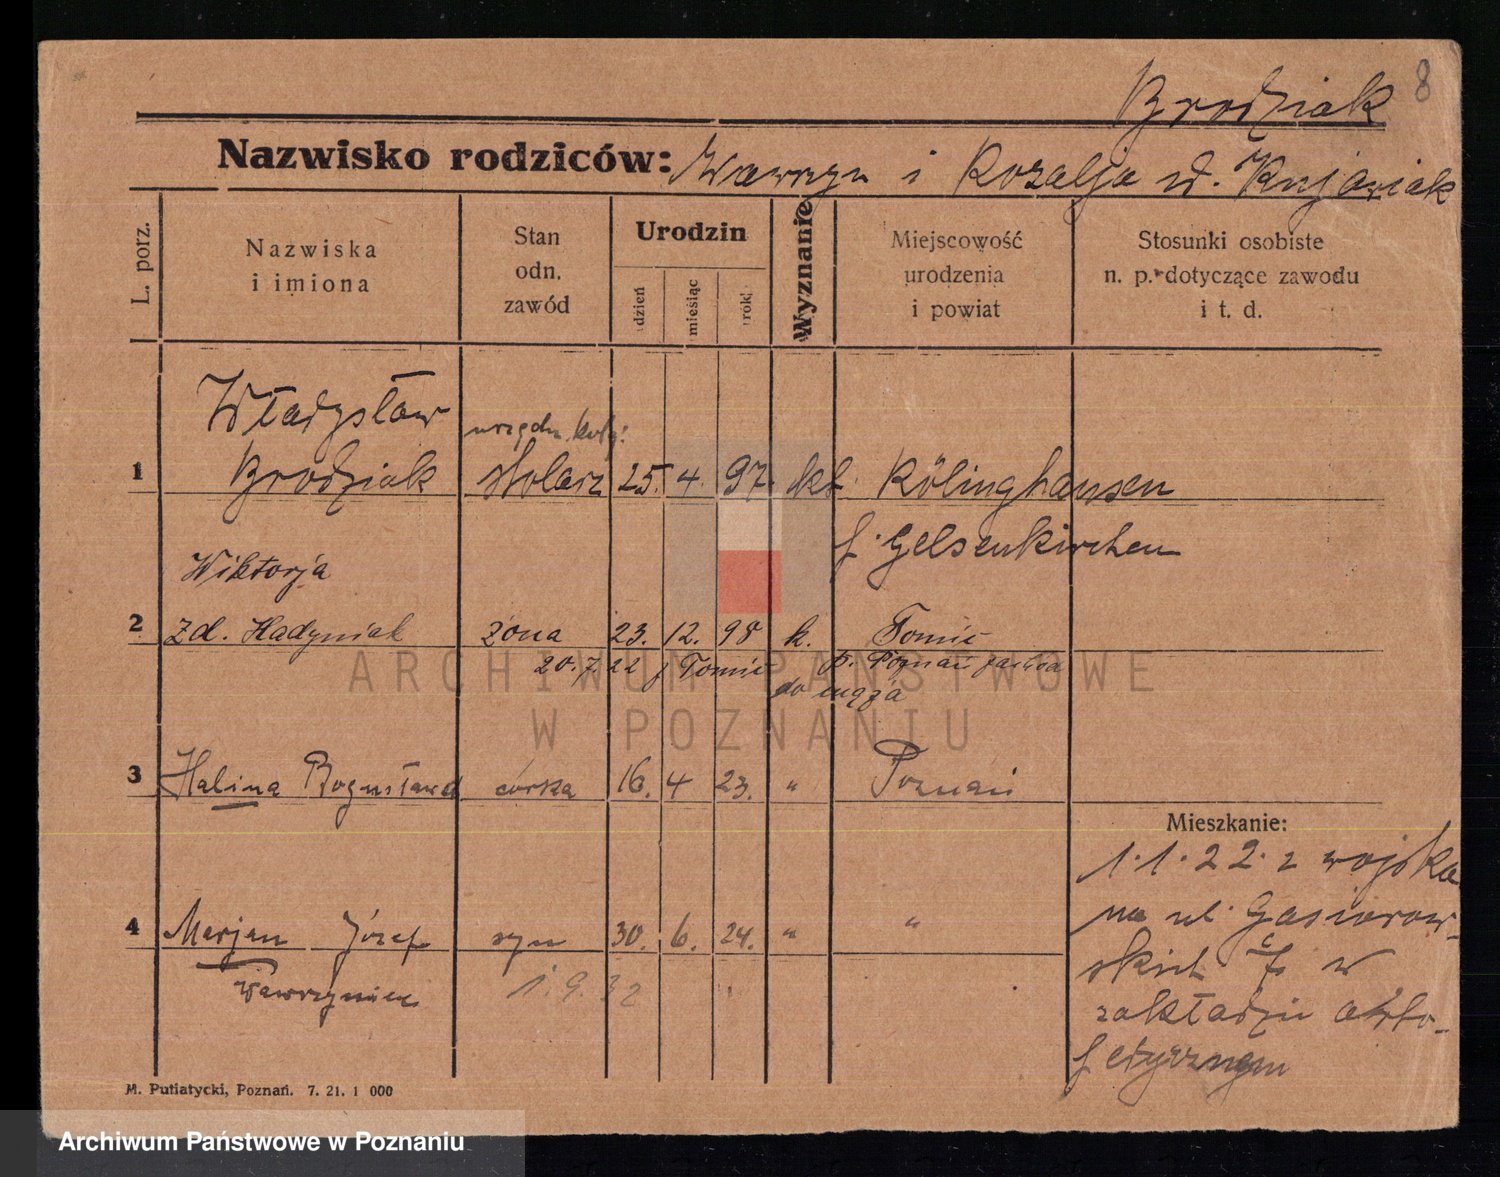 8
Brodziak
Nazwisko rodziców: Wawrzyn i Rozalja ud. Kujawiak
L. porz.
Nazwiska
i imiona
Stan
odn.
zawód
Urodzin
dzień
miesiąc
rok
Wyznanie
Miejscowość
urodzenia
i powiat
Stosunki osobiste
n. p. dotyczące zawodu
i t. d.
Władysław
urzędn. kolj.
1 Brodziak stolarz 25. 4. 97. kt. Rölinghausen
f. Gelsenkirchen
Wiktorja
2 zd. Hadyniak żona 23. 12. 98 k. Tomić
20. 7. 22 f Tomić p. Poznań zachód
do męża
3 Halina Bogusława córka 16. 4 23. " Poznań
Mieszkanie:
1. 1. 22. z wojska
na ul. Gąsiorow-
skich w
zakładzie orto-
pedycznym
4 Marjan Józef syn 30. 6. 24. " "
Wawrzyniec 1. 9. 32
M. Putiatycki, Poznań. 7. 21. 1 000
ARCHIWUM PAŃSTWOWE
W POZNANIU
Archiwum Państwowe w Poznaniu